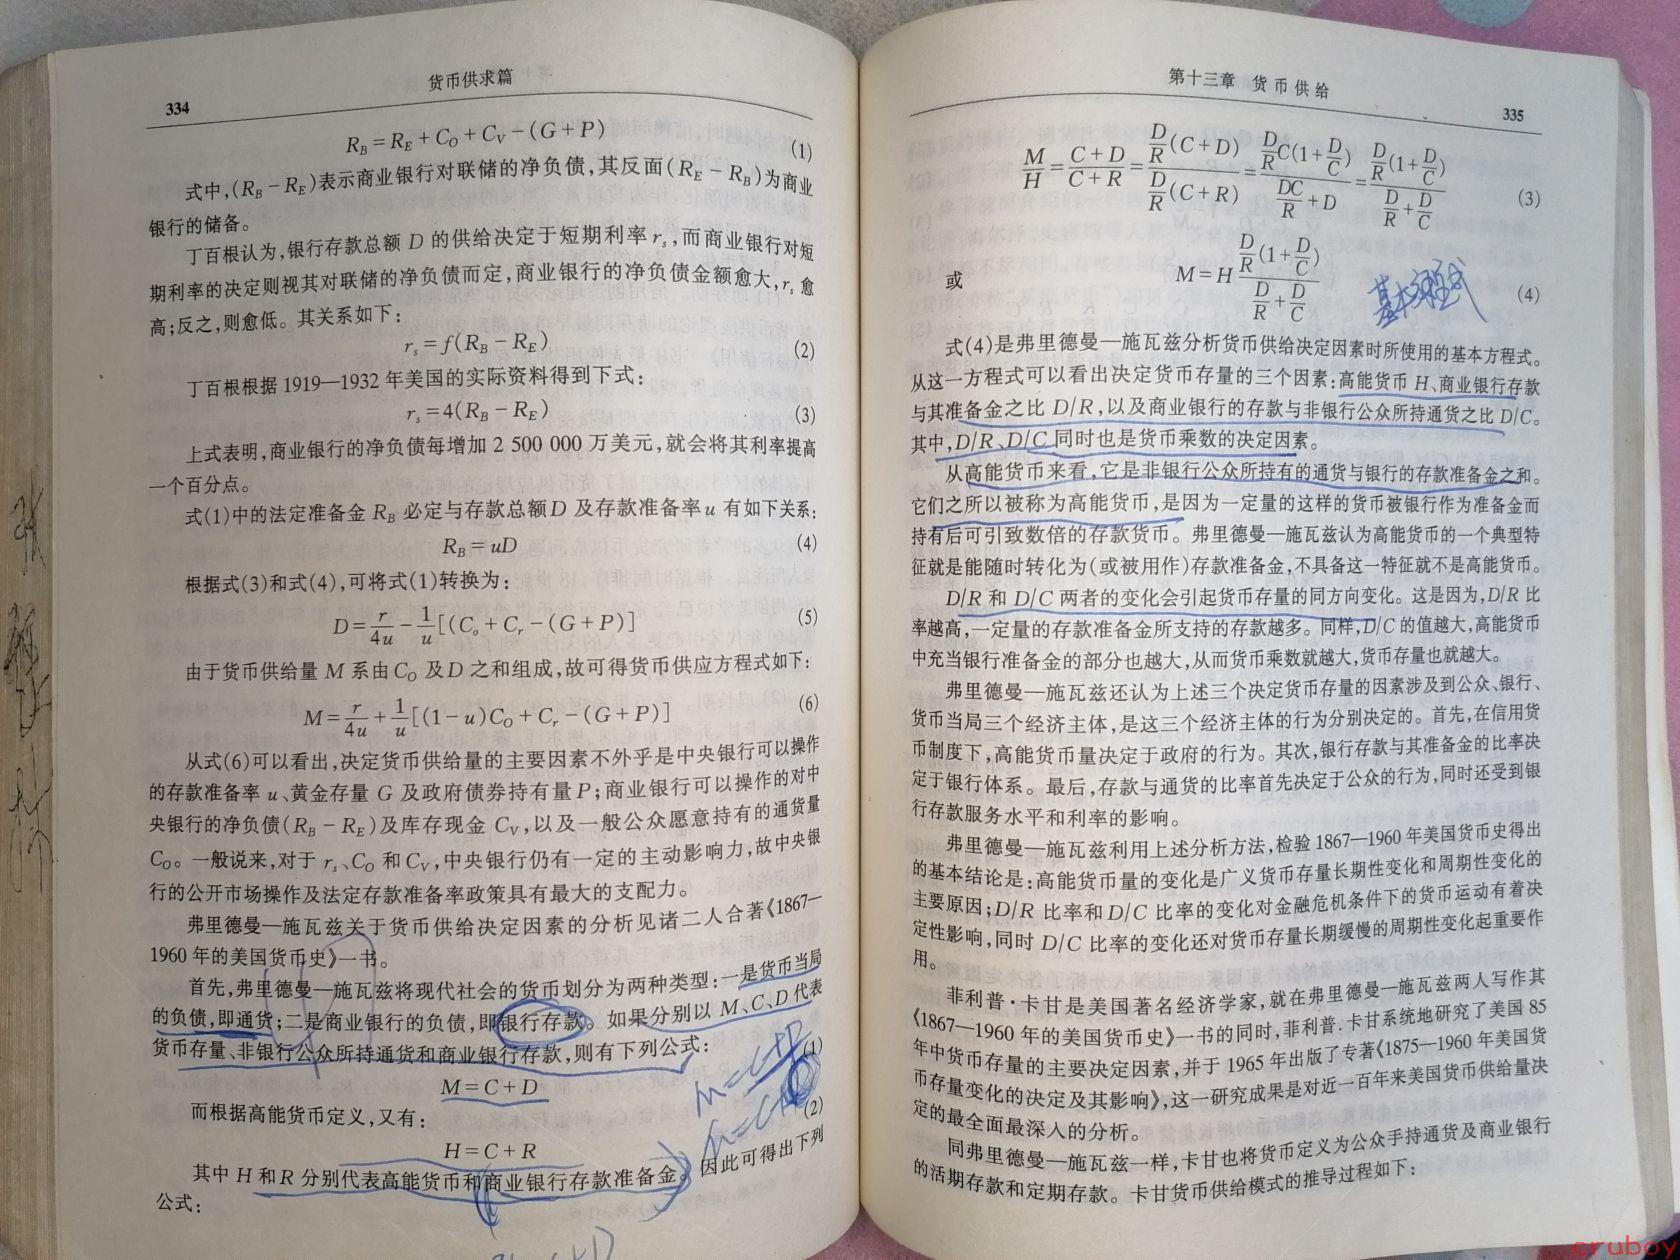 货币供求篇
334
R_B = R_E + C_O + C_V − (G + P) (1)
式中,(R_B − R_E)表示商业银行对联储的净负债,其反面(R_E − R_B)为商业
银行的储备。
丁百根认为,银行存款总额 D 的供给决定于短期利率 r_s,而商业银行对短
期利率的决定则视其对联储的净负债而定,商业银行的净负债金额愈大,r_s 愈
高;反之,则愈低。其关系如下:
r_s = f(R_B − R_E) (2)
丁百根根据 1919—1932 年美国的实际资料得到下式:
r_s = 4(R_B − R_E) (3)
上式表明,商业银行的净负债每增加 2 500 000 万美元,就会将其利率提高
一个百分点。
式(1)中的法定准备金 R_B 必定与存款总额 D 及存款准备率 u 有如下关系:
R_B = uD (4)
根据式(3)和式(4),可将式(1)转换为:
D = r/4u − 1/u[(C_o + C_r − (G + P)] (5)
由于货币供给量 M 系由 C_O 及 D 之和组成,故可得货币供应方程式如下:
M = r/4u + 1/u[(1 − u)C_O + C_r − (G + P)] (6)
从式(6)可以看出,决定货币供给量的主要因素不外乎是中央银行可以操作
的存款准备率 u、黄金存量 G 及政府债券持有量 P;商业银行可以操作的对中
央银行的净负债(R_B − R_E)及库存现金 C_V,以及一般公众愿意持有的通货量
C_O。一般说来,对于 r_s、C_O 和 C_V,中央银行仍有一定的主动影响力,故中央银
行的公开市场操作及法定存款准备率政策具有最大的支配力。
弗里德曼—施瓦兹关于货币供给决定因素的分析见诸二人合著《1867—
1960 年的美国货币史》一书。
首先,弗里德曼—施瓦兹将现代社会的货币划分为两种类型:一是货币当局
的负债,即通货;二是商业银行的负债,即银行存款。如果分别以 M、C、D 代表
货币存量、非银行公众所持通货和商业银行存款,则有下列公式:
M = C + D (1)
而根据高能货币定义,又有:
H = C + R (2)
其中 H 和 R 分别代表高能货币和商业银行存款准备金。因此可得出下列
公式:
M=C+D
第十三章 货币供给
335
M/H = (C + D)/(C + R) = (D/R(C + D))/(D/R(C + R)) = (D/R C(1 + D/C))/(DC/R + D) = (D/R(1 + D/C))/(D/R + D/C) (3)
或 M = H (D/R(1 + D/C))/(D/R + D/C) (4)
式(4)是弗里德曼—施瓦兹分析货币供给决定因素时所使用的基本方程式。
从这一方程式可以看出决定货币存量的三个因素:高能货币 H、商业银行存款
与其准备金之比 D/R,以及商业银行的存款与非银行公众所持通货之比 D/C。
其中,D/R、D/C 同时也是货币乘数的决定因素。
从高能货币来看,它是非银行公众所持有的通货与银行的存款准备金之和。
它们之所以被称为高能货币,是因为一定量的这样的货币被银行作为准备金而
持有后可引致数倍的存款货币。弗里德曼—施瓦兹认为高能货币的一个典型特
征就是能随时转化为(或被用作)存款准备金,不具备这一特征就不是高能货币。
D/R 和 D/C 两者的变化会引起货币存量的同方向变化。这是因为,D/R 比
率越高,一定量的存款准备金所支持的存款越多。同样,D/C 的值越大,高能货币
中充当银行准备金的部分也越大,从而货币乘数就越大,货币存量也就越大。
弗里德曼—施瓦兹还认为上述三个决定货币存量的因素涉及到公众、银行、
货币当局三个经济主体,是这三个经济主体的行为分别决定的。首先,在信用货
币制度下,高能货币量决定于政府的行为。其次,银行存款与其准备金的比率决
定于银行体系。最后,存款与通货的比率首先决定于公众的行为,同时还受到银
行存款服务水平和利率的影响。
弗里德曼—施瓦兹利用上述分析方法,检验 1867—1960 年美国货币史得出
的基本结论是:高能货币量的变化是广义货币存量长期性变化和周期性变化的
主要原因;D/R 比率和 D/C 比率的变化对金融危机条件下的货币运动有着决
定性影响,同时 D/C 比率的变化还对货币存量长期缓慢的周期性变化起重要作
用。
菲利普·卡甘是美国著名经济学家,就在弗里德曼—施瓦兹两人写作其
《1867—1960 年的美国货币史》一书的同时,菲利普·卡甘系统地研究了美国 85
年中货币存量的主要决定因素,并于 1965 年出版了专著《1875—1960 年美国货
币存量变化的决定及其影响》,这一研究成果是对近一百年来美国货币供给量决
定的最全面最深入的分析。
同弗里德曼—施瓦兹一样,卡甘也将货币定义为公众手持通货及商业银行
的活期存款和定期存款。卡甘货币供给模式的推导过程如下:
cruboy